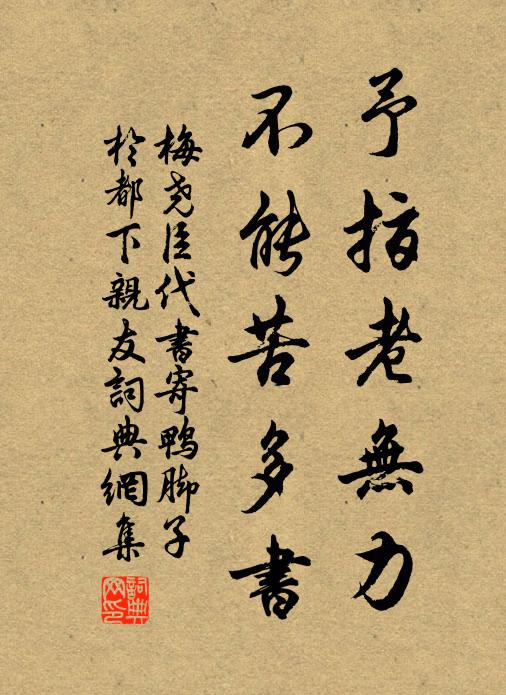 予指老無力
不能苦多書
梅堯臣代書寄鴨脚子
於都下親友詞典網集
詞典網印